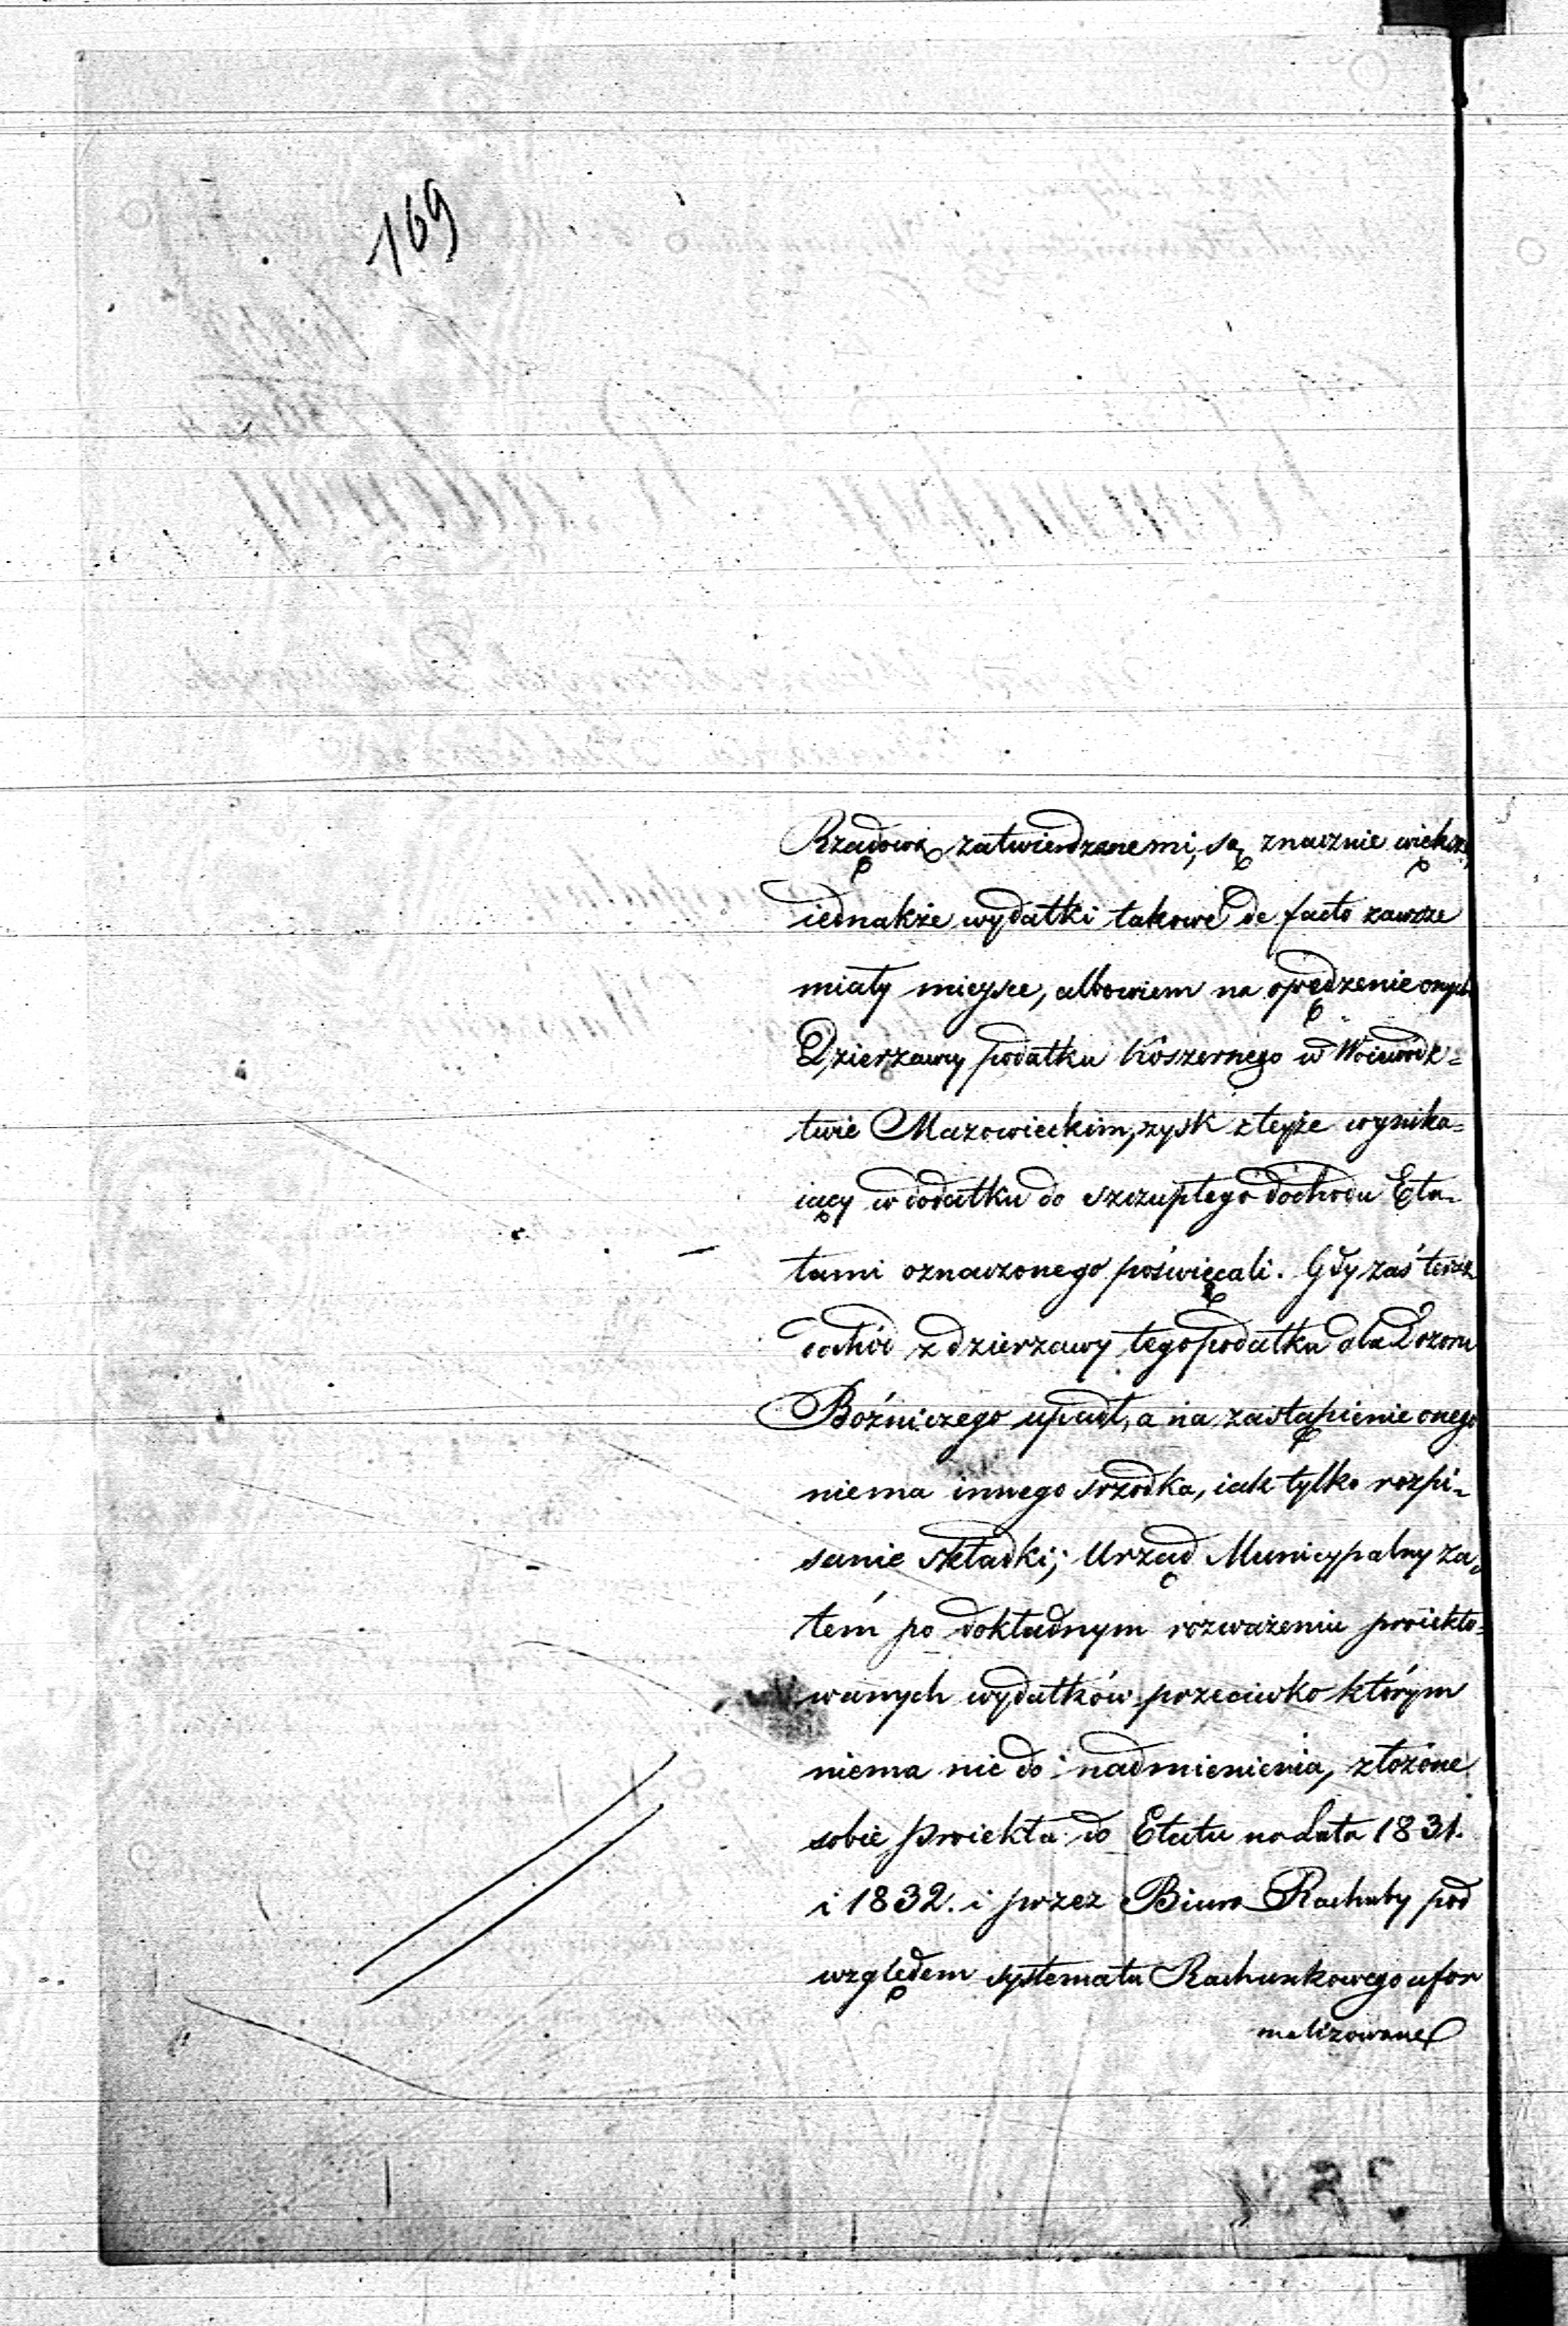 169
Rządową zatwierdzonemi, są znacznie większe
iednakże wydatki takowe de facto zawsze
miały mieysce, albowiem na opędzenie onych
Dzierzawcy podatku Koszernego w Woiewódz=
twie Mazowieckim, zysk z teyże wynika=
iący w dodatku do szczupłego dochodu Eta=
tami oznaczonego poświęcali. Gdy zaś teraz
dochód z dzierzawy tego podatku dla Dozoru
Bożniczego upadł, a na zastąpienie onego
niema innego srzodka, iak tylko rozpi=
sanie składki; Urząd Municypalny za=
tém po dokładnym rozważeniu proiekto=
wanych wydatków przeciwko którym
niema nic do nadmienienia, złożone
sobie proiekta do Etatu na Lata 1831.
i 1832. i przez Biuro Rachuby pod
względem systematu Rachunkowego ufor
malizowane